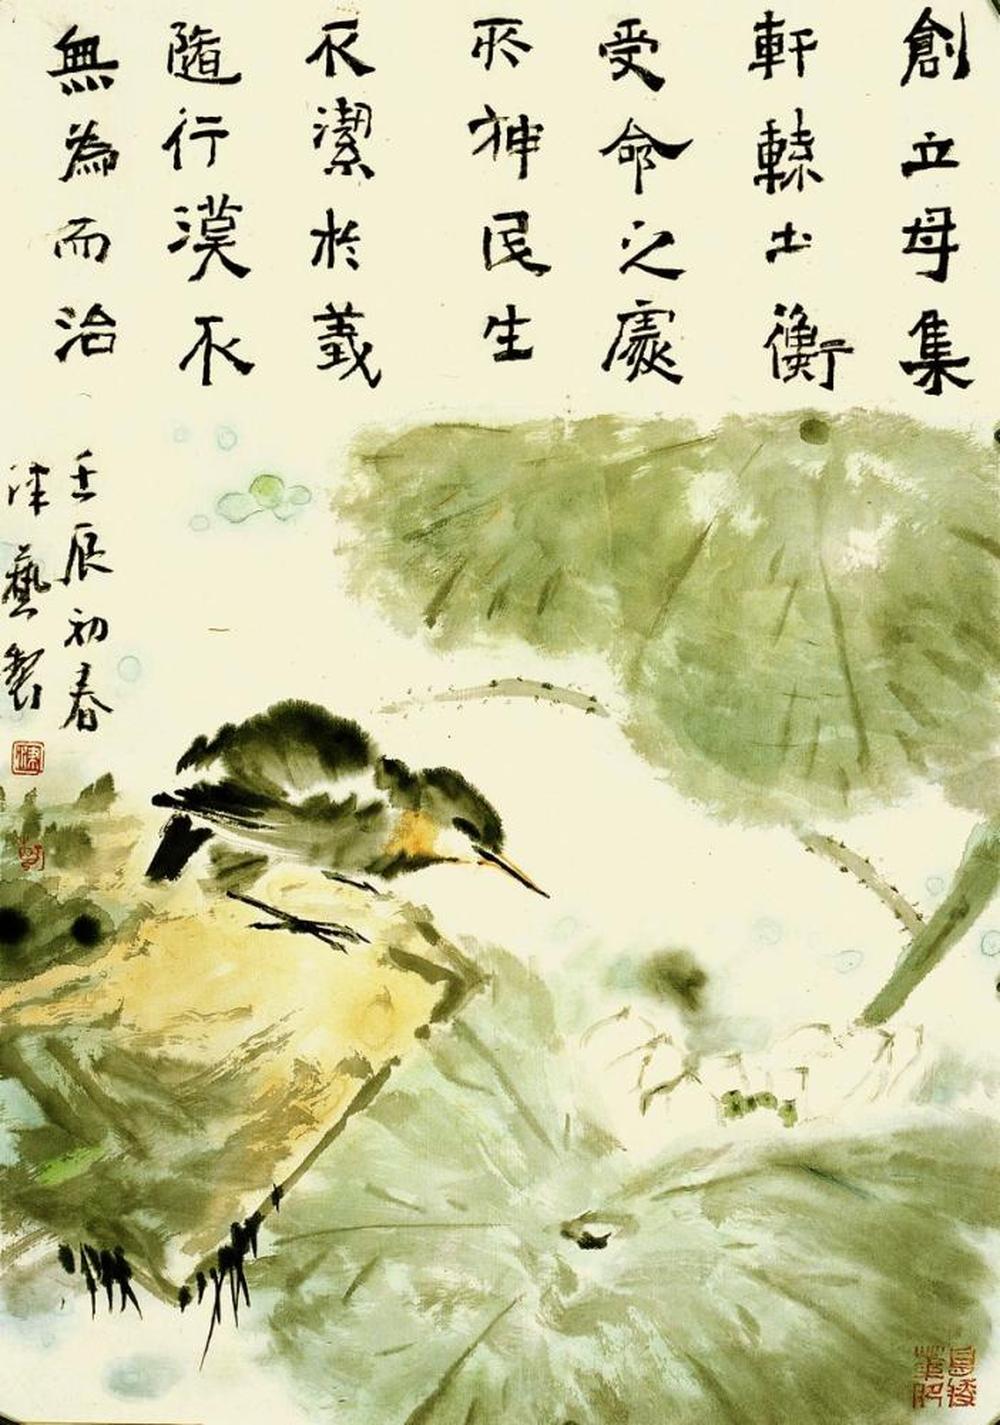 創立母集
軒轅土衡
受命之處
示神民生
不潔於義
隨行漠不
無為而治
壬辰初春
津藝製